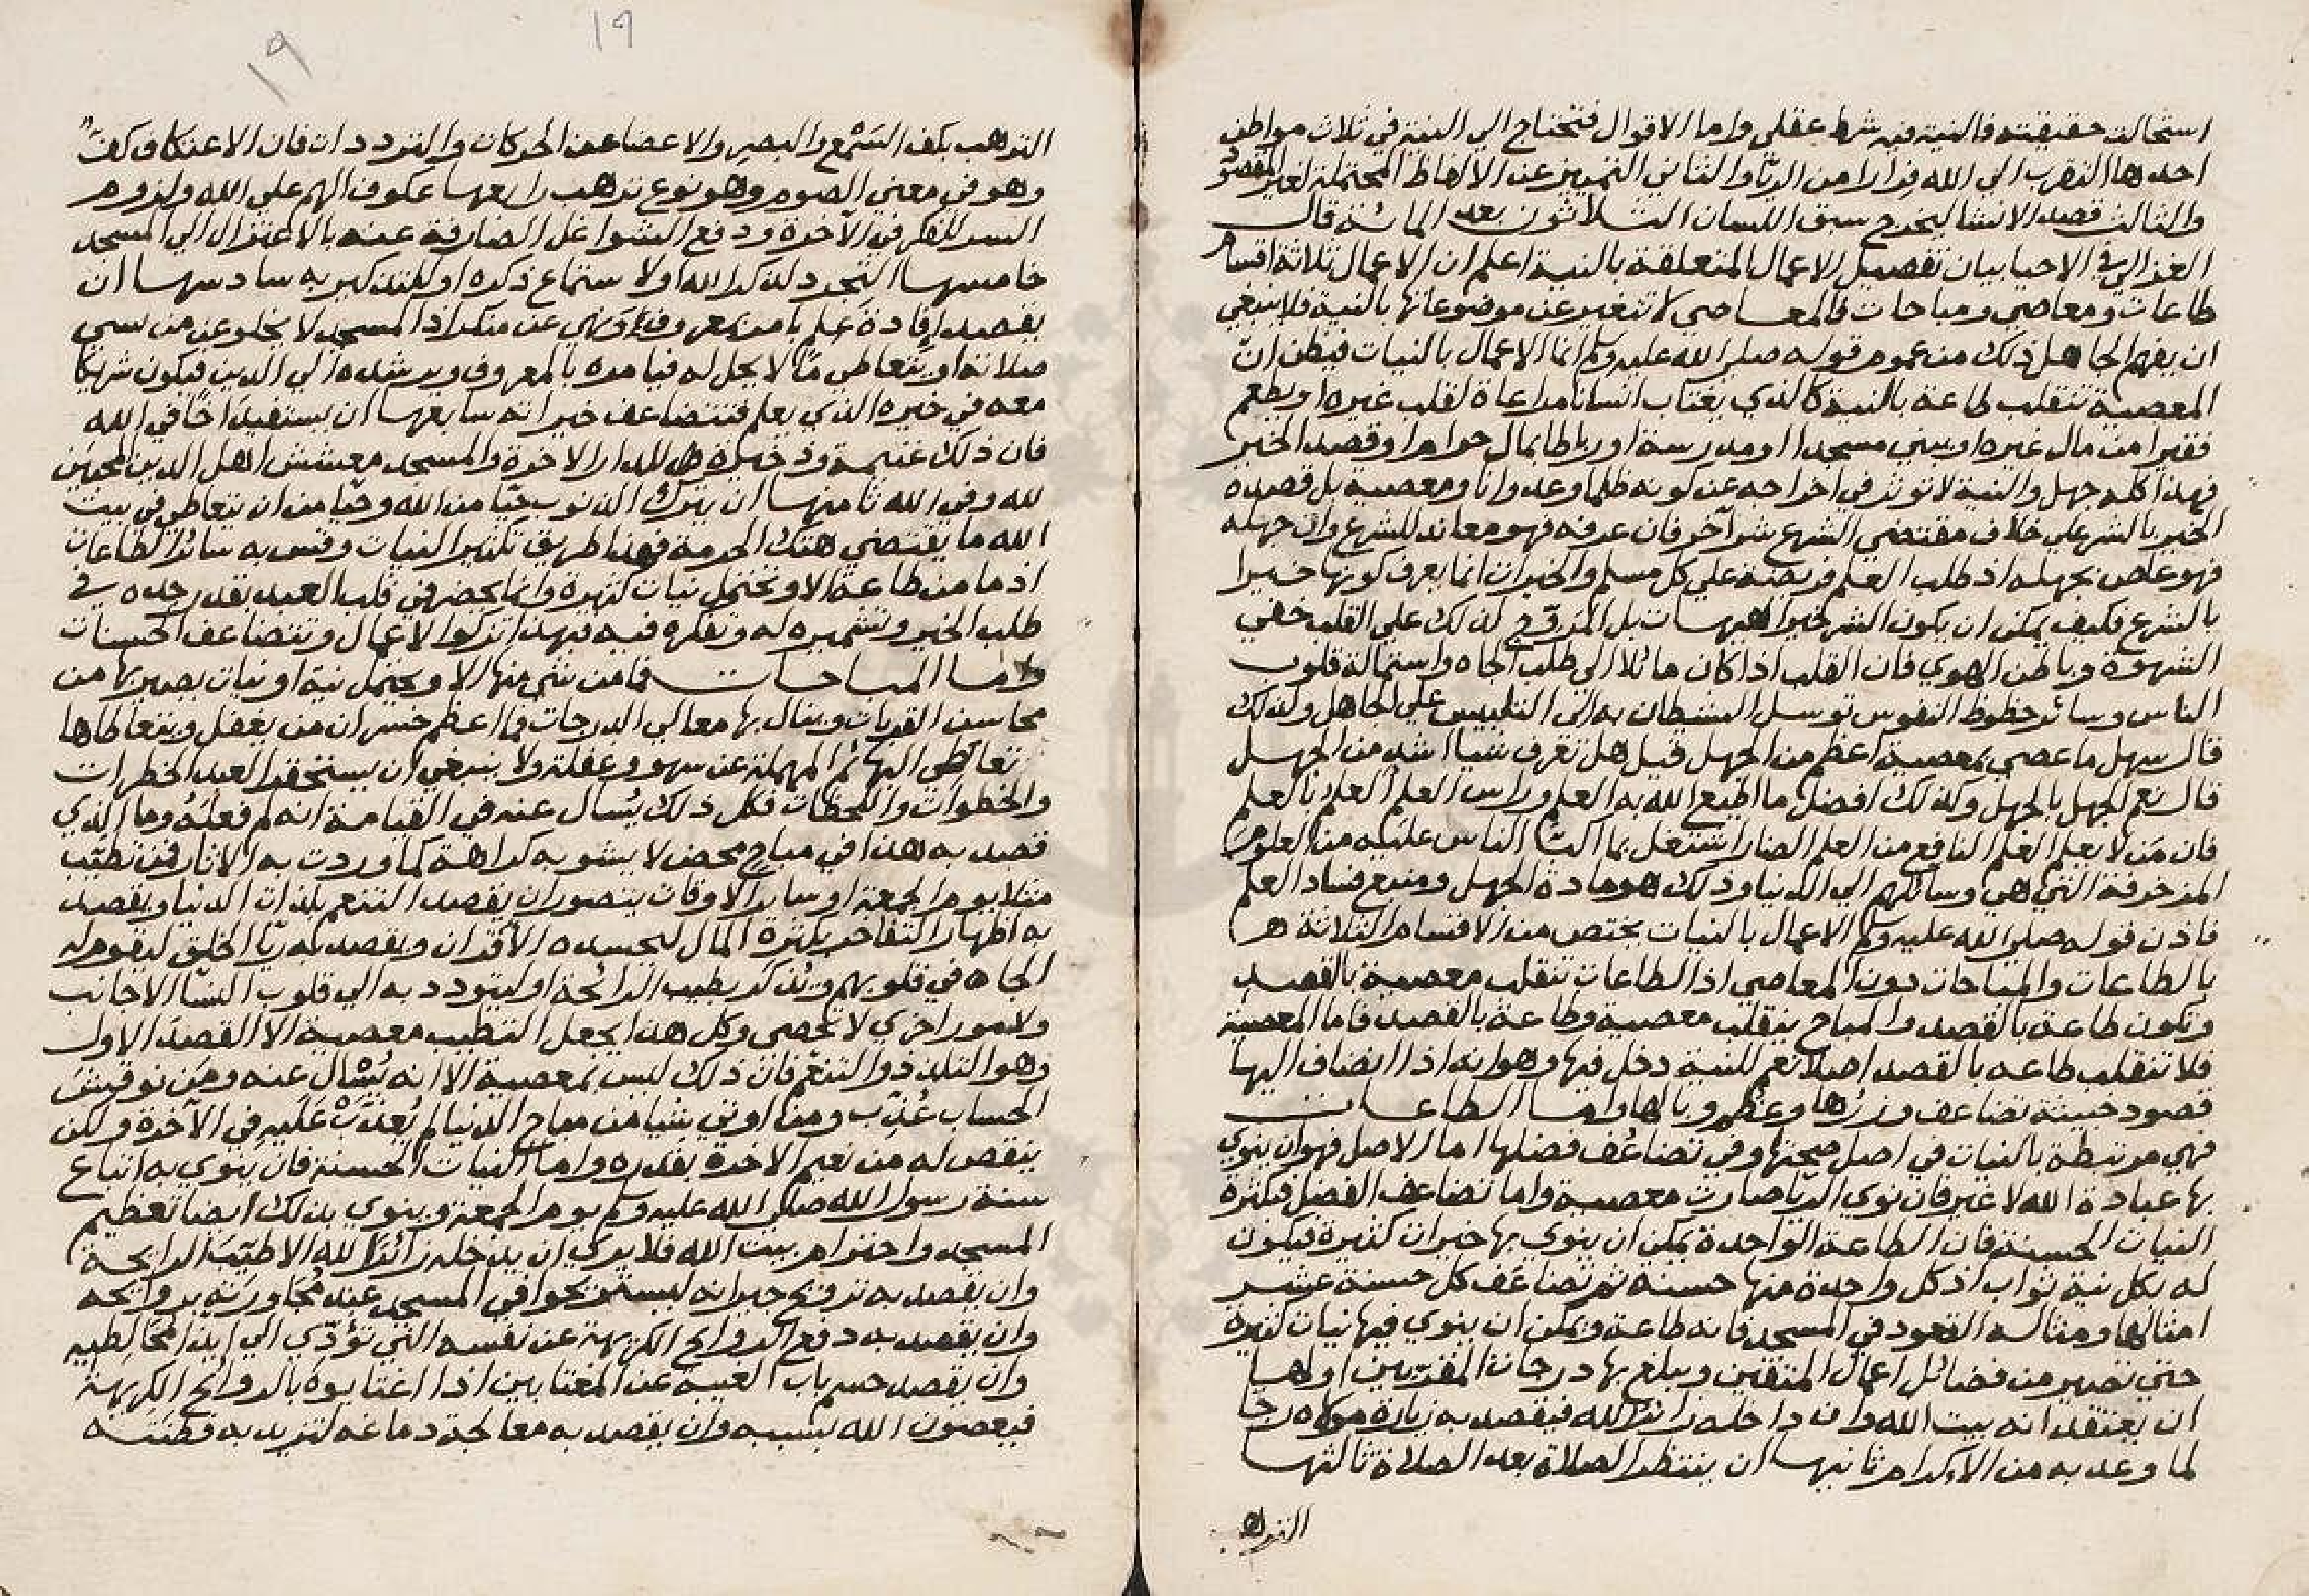 استحالت حقيقته فالنية فيه شرط عقلي واما الاقوال فتحتاج الي النية في ثلاث مواطن
احدها التقرب الي الله فرارا من الريا والثاني التمييز عن الالفاظ المحتملة لغير المقصود
والثالث قصد الانشا ليخرج سبق اللسان الثلاثون بعد المائة قال
الغزالي في الاحيا بيان تفصيل الاعمال المتعلقة بالنية اعلم ان الاعمال ثلاثة اقسام
طاعات ومعاصي ومباحات فالمعاصي لا تتغير عن موضوعاتها بالنية فلا ينبغي
ان يفهم الجاهل ذلك من عموم قوله صلي الله عليه وسلم انما الاعمال بالنيات فيظن ان
المعصية تنقلب طاعة بالنية كالذي يغتاب انسانا مراعاة لقلب غيره او يطعم
فقيرا من مال غيره او يبني مسجدا او مدرسة او رباطا بمال حرام او قصد الخير
فهذا كله جهل والنية لا توثر في اخراجه عن كونه ظلما وعدوانا ومعصية بل قصده
الخير بالشر علي خلاف مقتضي الشرع شر آخر فان عرفه فهو معاند للشرع وان جهله
فهو عاص بجهله اذ طلب العلم فريضة علي كل مسلم والخيرات انما يعرف كونها خيرا
بالشرع فكيف يمكن ان يكون الشر خيرا هيهات بل المروج لذلك علي القلب خفي
الشهوة وباطن الهوي فان القلب اذا كان مائلا الي طلب الجاه واستمالة قلوب
الناس وسائر حظوظ النفوس توسل الشيطان به الي التلبيس علي الجاهل وكذلك
قال سهل ما عصي بمعصية اعظم من الجهل قيل هل تعرف شيا اشد من الجهل
قال نعم الجهل بالجهل وكذلك افضل ما اطيع الله به العلم وراس العلم العلم بالعلم
فان من لا يعلم العلم النافع من العلم الضار اشتغل بما اكب الناس عليه من العلوم
المزخرفة التي هي وسائلهم الي الدنيا وذلك هو مادة الجهل ومنبع فساد العلم
فاذن قوله صلي الله عليه وسلم الاعمال بالنيات يختص من الاقسام الثلاثة
بالطاعات والمباحات دون المعاصي اذ الطاعات تنقلب معصية بالقصد
وتكون طاعة بالقصد والمباح ينقلب معصية وطاعة بالقصد فاما المعصية
فلا تنقلب طاعه بالقصد اصلا نعم للنية دخل فيها وهو انه اذا انضاف اليها
قصود خبيثة تضاعف وزرها وعظم وبالها واما الطاعات
فهي مرتبطة بالنيات في اصل صحتها وفي تضاعف فضلها اما الاصل فهو ان ينوي
بها عبادة الله لا غير فان نوي الريا صارت معصية واما تضاعف الفضل فبكثرة
النيات الحسنة فان الطاعة الواحدة يمكن ان ينوي بها خيرات كثيرة فيكون
له بكل نية ثواب اذ كل واحدة منها حسنة ثم تضاعف كل حسنة عشر
امثالها ومثاله القعود في المسجد فانه طاعة ويمكن ان ينوي فيها نيات كثيرة
حتي تصير من فضائل اعمال المتقين ويبلغ بها درجات المقربين اولها
ان يعتقد انه بيت الله وان داخله زائر الله فيقصد به زيارة مولاه رجا
لما وعد به من الاكرام ثانيها ان ينتظر الصلاة بعد الصلاة ثالثها
الترهب
١٩
١٩
الترهب بكف السمع والبصر والاعضا عن الحركات والترددات فان الاعتكاف كف
وهو في معني الصوم وهو نوع ترهب رابعها عكوف الهم علي الله ولزوم
السر للفكر في الآخرة ودفع الشواغل الصارفة عنه بالاعتزال الي المسجد
خامسها التجرد لذكر الله او لاستماع ذكره او للتذكير به سادسها ان
يقصد افادة علم بامر بمعروف ونهي عن منكر اذ المسجد لا يخلو عن من يسي
صلاته او يتعاطي ما لا يحل له فيامره بالمعروف ويرشده الي الدين فيكون شريكا
معه في خيره الذي يعلم فتتضاعف خيراته سابعها ان يستفيد اخا في الله
فان ذلك غنيمة وذخيرة للدار الاخرة والمسجد معشش اهل الدين المحبين
لله وفي الله ثامنها ان يترك الذنوب حيا من الله وحيا من ان يتعاطي في بيت
الله ما يقتضي هتك الحرمة فهذا طريق تكثير النيات وقس به سائر الطاعات
اذ ما من طاعة الا وتحتمل نيات كثيرة وانما يحضر في قلب العبد بقدر جده في
طلب الخير وتشميره له وتفكره فيه فبهذا تزكوا الاعمال وتتضاعف الحسنات
واما المباحات فما من شي منها الا ويحتمل نية او نيات يصير بها من
محاسن القربات وينال بها معالي الدرجات فما اعظم خسران من يغفل ويتعاطاها
تعاطي البهائم المهملة عن سهو وغفلة ولا ينبغي ان يستحقر العبد الخطرات
والخطوات واللحظات فكل ذلك يسال عنه في القيامة انه لم فعله وما الذي
قصد به هذا في مباح محض لا يشوبه كراهة كما وردت به الاثار فمن تطيب
مثلا يوم الجمعة او ساير الاوقات يتصور ان يقصد التنعم بلذات الدنيا ويقصد
به اظهار التفاخر بكثرة المال ليحسده الأقران ويقصد به ريا الخلق ليقوم له
الجاه في قلوبهم ويذكر بطيب الرائحة او ليتودد به الي قلوب النسا الاجانب
ولامور اخري لا تحصي وكل هذا يجعل التطيب معصية الا القصد الاول
وهو التلذذ والتنعم فان ذلك ليس بمعصية الا انه يسال عنه ومن نوقش
الحساب عذب ومن اوتي شيا من مباح الدنيا لم يعذب عليه في الآخرة ولكن
ينقص له من نعيم الاخرة بقدره واما النيات الحسنة فان ينوي به اتباع
سنة رسول الله صلي الله عليه وسلم يوم الجمعة وينوي بذلك ايضا تعظيم
المسجد واحترام بيت الله فلا يري ان يدخله زائرا لله الا طيب الرايحة
وان يقصد به ترويح جيرانه ليستريحوا في المسجد عند مجاورته بروايحه
وان يقصد به دفع الروايح الكريهة عن نفسه التي تؤدي الي ايذا مخالطيه
وان يقصد حسم باب الغيبة عن المغتابين اذا اغتابوه بالروائح الكريهة
فيعصون الله بسببه وان يقصد به معالجة دماغه لتزيد به فطنته